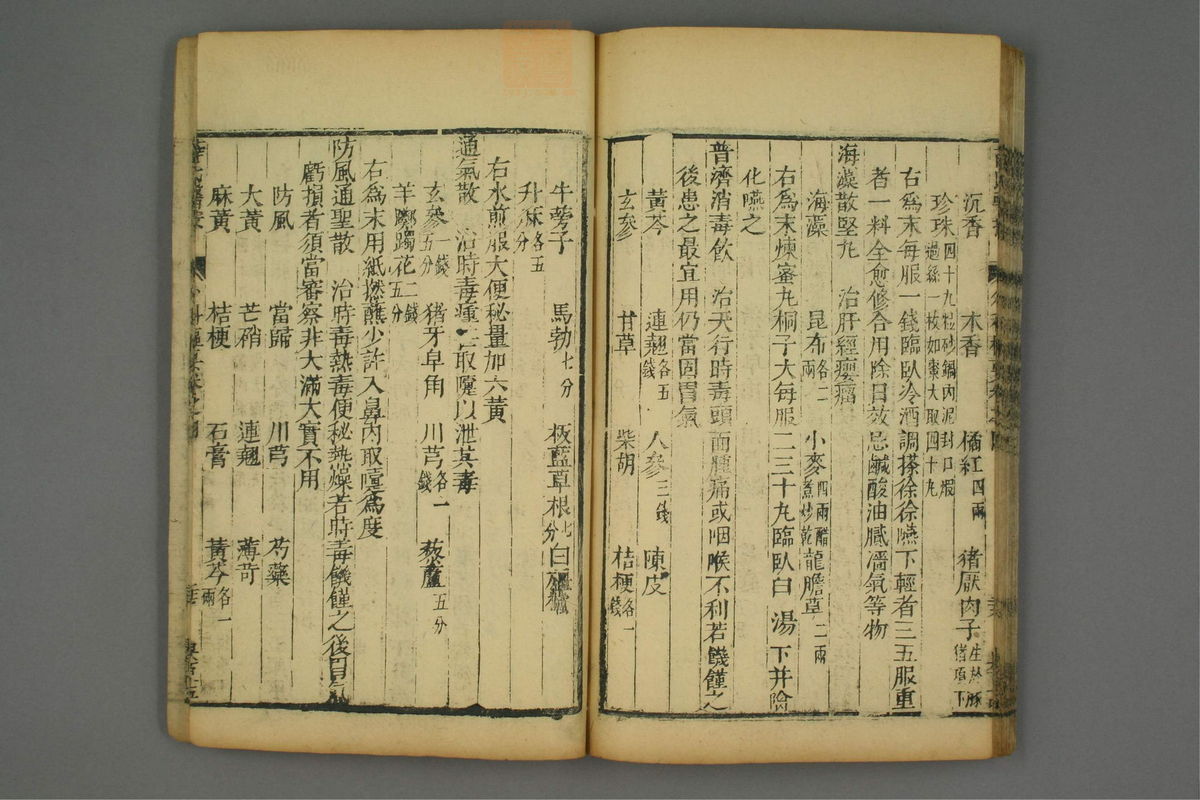 沉香 木香 橘紅四兩 猪厭肉子生於豚猪項下
珍珠四十九粒砂鍋內泥封口煅過絲一枚如棗大取四十九
右為末每服一錢臨臥冷酒調搽徐徐嚥下輕者三五服重
者一料全愈修合用除日效 忌鹹酸油膩濇氣等物
海藻散堅丸 治肝經癭瘤
海藻 昆布各二兩 小麥四兩醋煮炒乾 龍膽草二兩
右為末煉蜜丸桐子大每服二三十丸臨臥白湯下并噙
化嚥之
普濟消毒飲 治天行時毒頭面腫痛或咽喉不利若饑饉之
後患之最宜用仍當固胃氣
黃芩 連翹各五錢 人參三錢 陳皮
玄參 甘草 柴胡 桔梗各一錢
牛蒡子 馬勃七分 板藍草根七分 白殭蠶
升麻各五分
右水煎服大便秘量加大黃
通氣散 治時毒瘇取嚔以泄其毒
玄參一錢五分 猪牙皁角 川芎各一錢 藜蘆五分
羊躑躅花二錢五分
右為末用紙撚蘸少許入鼻內取嚏為度
防風通聖散 治時毒熱毒便秘熱燥若時毒饑饉之後胃氣
虧損者須當審察非大滿大實不用
防風 當歸 川芎 芍藥
大黃 芒硝 連翹 薄苛
麻黃 桔梗 石膏 黃芩各一兩